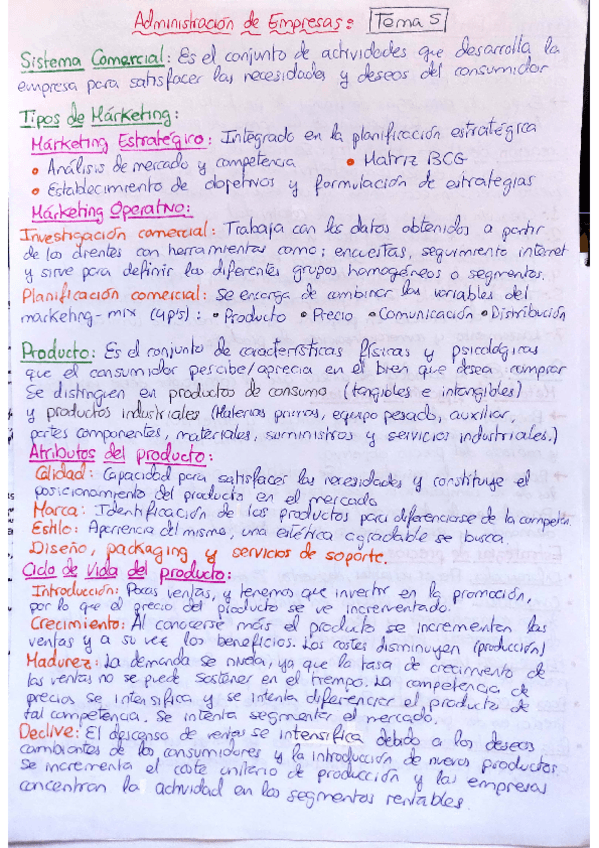 Administración de Empresas: Tema 5
Sistema Comercial: Es el conjunto de actividades que desarrolla la
empresa para satisfacer las necesidades y deseos del consumidor
Tipos de Márketing:
Márketing Estratégico: Integrado en la planificación estratégica
• Análisis de mercado y competencia • Matriz BCG
• Establecimiento de objetivos y formulación de estrategias
Márketing Operativo:
Investigación comercial: Trabaja con los datos obtenidos a partir
de los clientes con herramientas como: encuestas, seguimiento internet
y sirve para definir los diferentes grupos homogéneos o segmentos.
Planificación comercial: Se encarga de combinar las variables del
marketing-mix (4p's): • Producto • Precio • Comunicación • Distribución
Producto: Es el conjunto de características físicas y psicológicas
que el consumidor percibe/aprecia en el bien que desea comprar
Se distinguen en productos de consumo (tangibles e intangibles)
y productos industriales (Materias primas, equipo pesado, auxiliar,
partes componentes, materiales, suministros y servicios industriales.)
Atributos del producto:
Calidad: Capacidad para satisfacer las necesidades y constituye el
posicionamiento del producto en el mercado
Marca: Identificación de los productos para diferenciarse de la competen.
Estilo: Apariencia del mismo, una estética agradable se busca.
Diseño, packaging y servicios de soporte.
Ciclo de vida del producto:
Introducción: Pocas ventas, y tenemos que invertir en la promoción,
por lo que el precio del producto se ve incrementado.
Crecimiento: Al conocerse más el producto se incrementan las
ventas y a su vez los beneficios. Los costes disminuyen (producción)
Madurez: La demanda se nivela, ya que la tasa de crecimiento de
las ventas no se puede sostener en el tiempo. La competencia de
precios se intensifica y se intenta diferenciar el producto de
tal competencia. Se intenta segmentar el mercado.
Declive: El descenso de ventas se intensifica debido a los deseos
cambiantes de los consumidores y la introducción de nuevos productos
Se incrementa el coste unitario de producción y las empresas
concentran la actividad en los segmentos rentables.